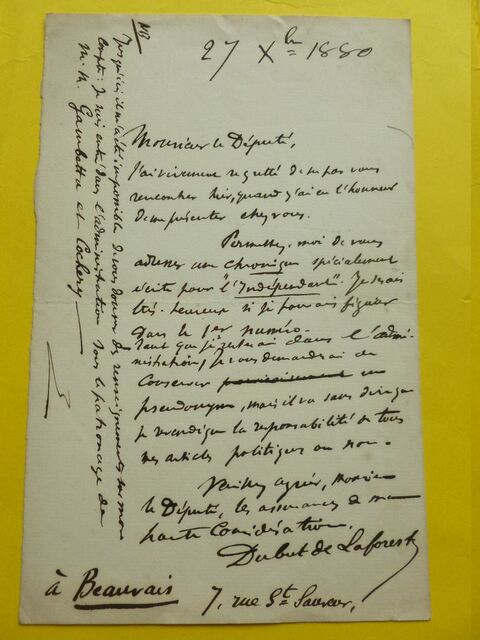 27 Xbre 1880
Monsieur le Député,
J'ai vivement regretté de ne pas vous
rencontrer hier, quand j'ai eu l'honneur
de me présenter chez vous.
Permettez-moi de vous
adresser une chronique spécialement
écrite pour "l'Indépendant". Je serais
très heureux si je pouvais figurer
dans le 1er numéro.
Tant que je serai dans l'admi-
nistration, je vous demanderai de
conserver un
pseudonyme, mais il va sans dire que
je revendique la responsabilité de tous
mes articles politiques ou non.
Veuillez agréer, Monsieur
le Député, les assurances de ma
haute considération.
Dubut de Laforest
à Beauvais 7, rue St. Sauveur,
NB
Jusqu'ici il m'a été impossible de vous donner des renseignements sur mon
compte : Je suis entré dans l'administration sous le patronage de
M.M. Gambetta et Cochery